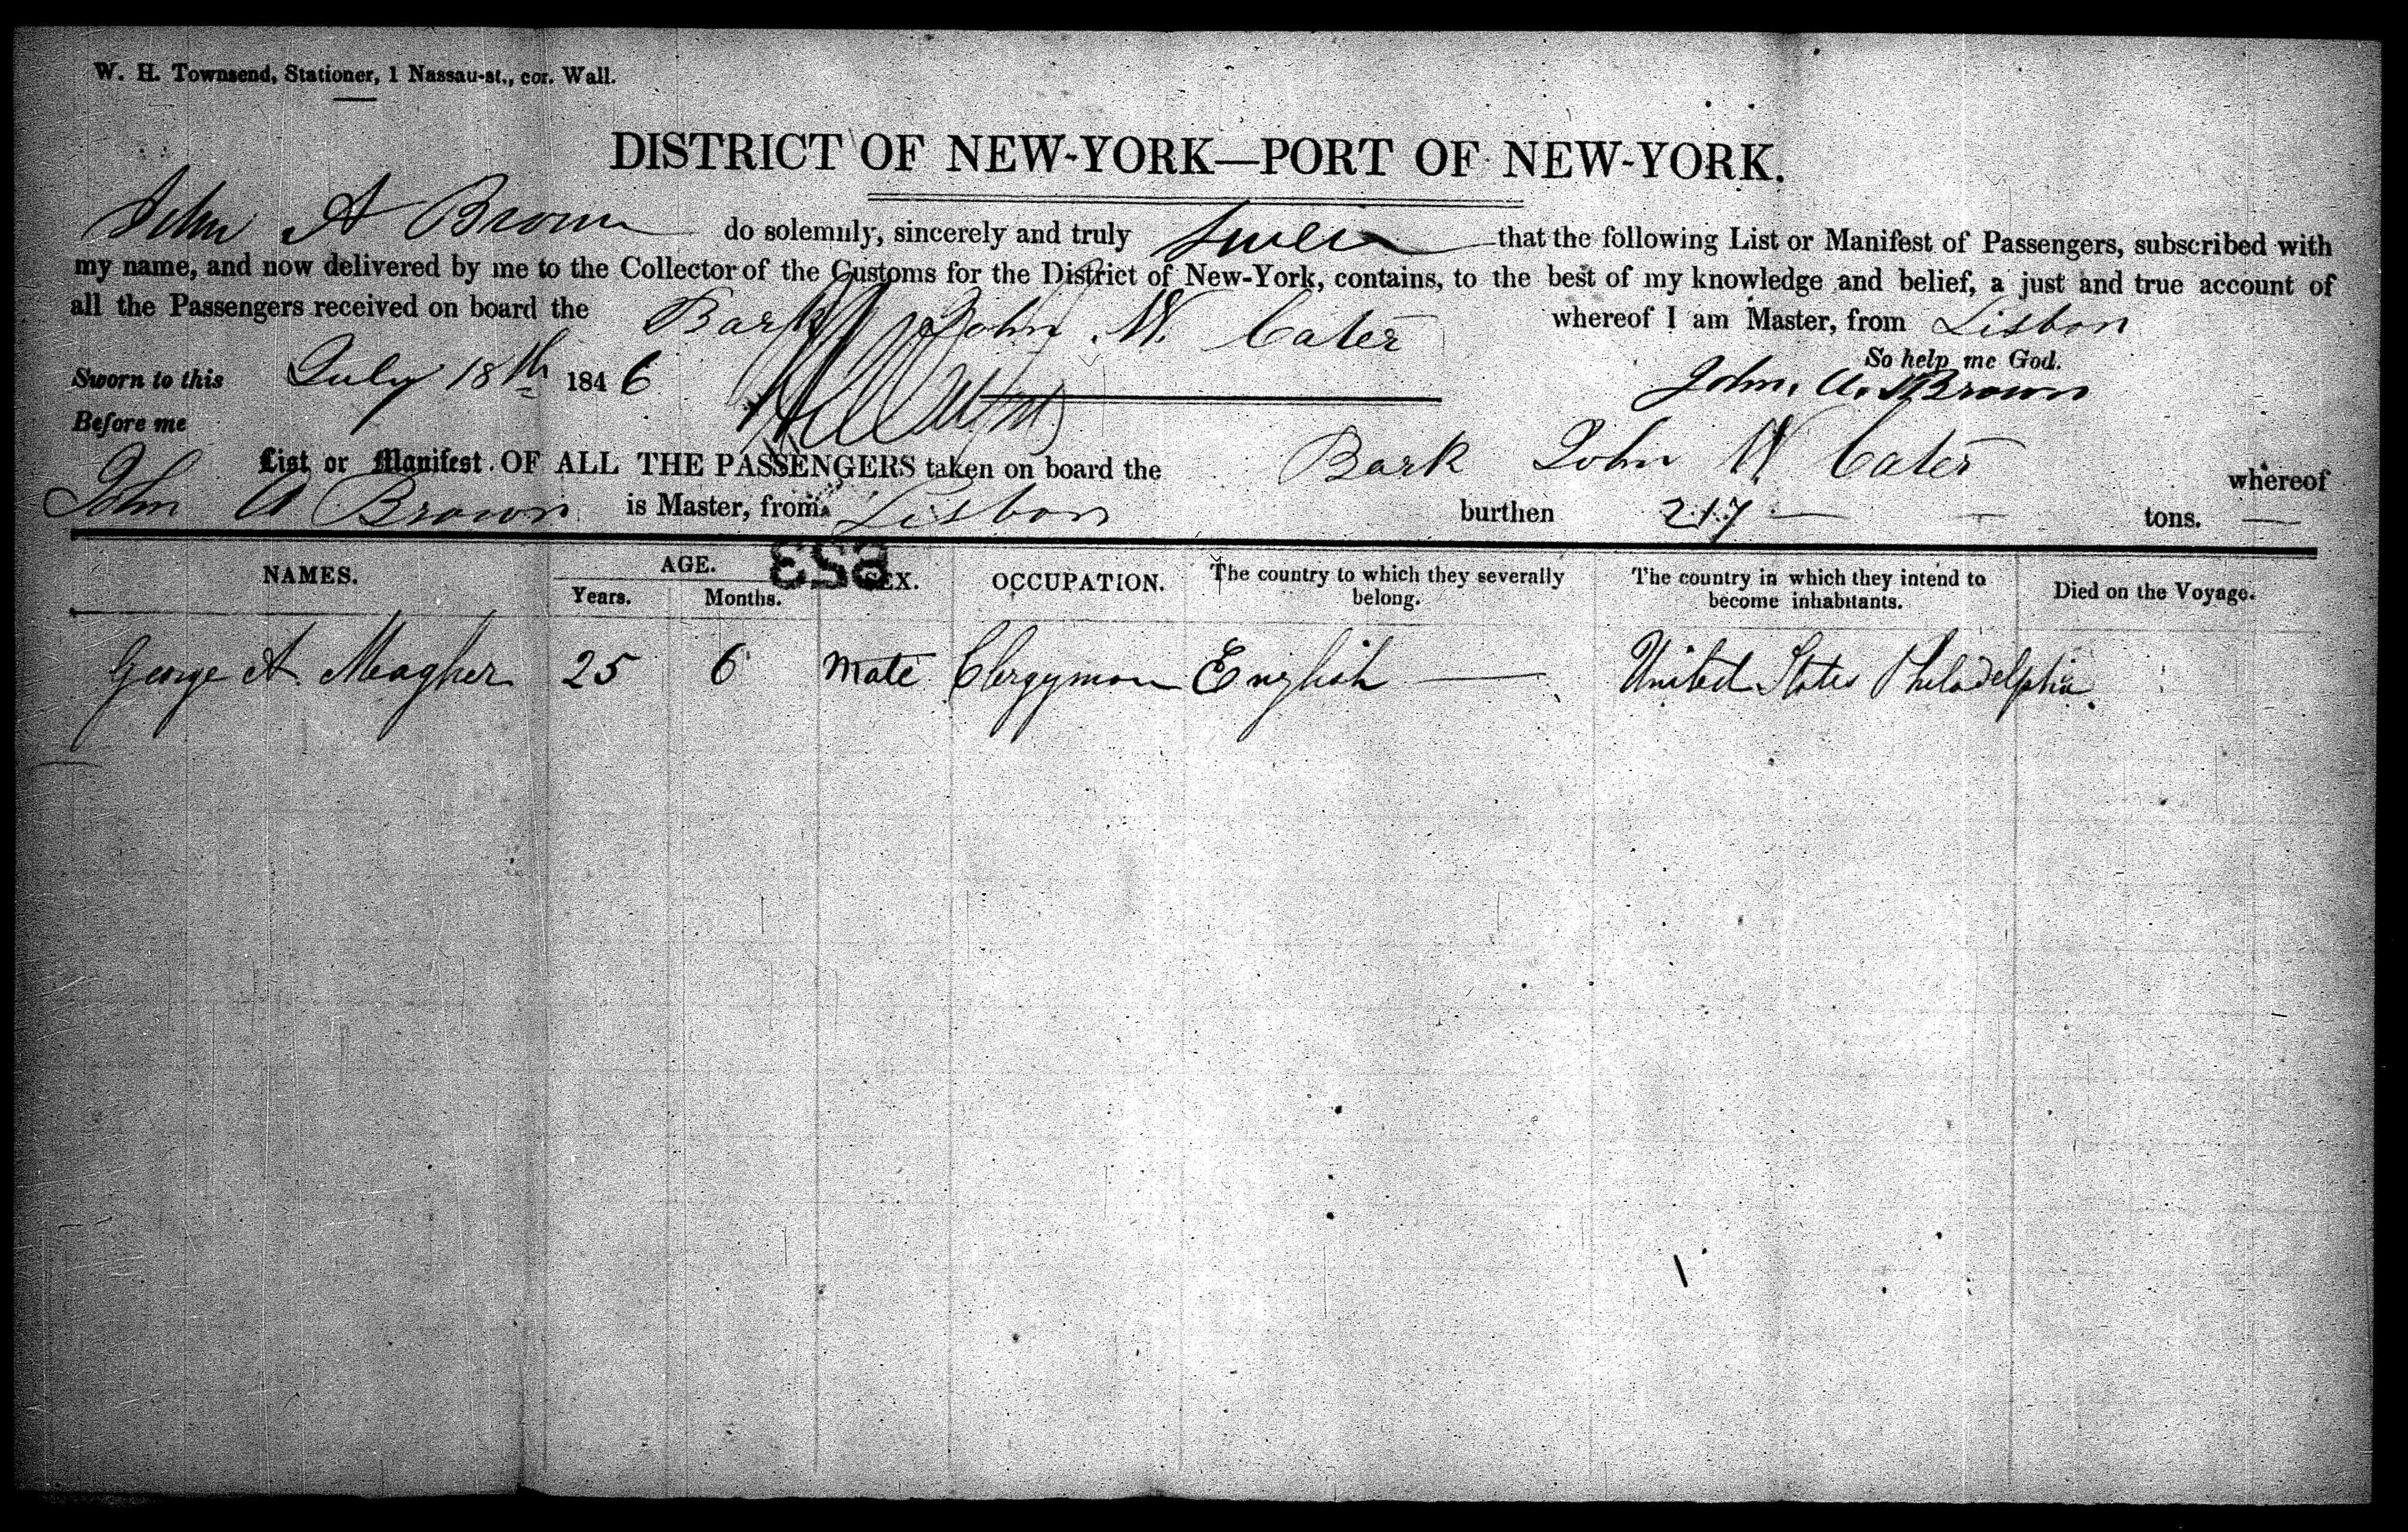 W. H. Townsend, Stationer, 1 Nassau-st., cor. Wall.
DISTRICT OF NEW-YORK—PORT OF NEW-YORK.
John A Brown do solemnly, sincerely and truly swear that the following List or Manifest of Passengers, subscribed with
my name, and now delivered by me to the Collector of the Customs for the District of New-York, contains, to the best of my knowledge and belief, a just and true account of
all the Passengers received on board the Bark John W. Cater whereof I am Master, from Lisbon
So help me God.
Sworn to this July 18th 1846 John. A. Brown
Before me
List or Manifest OF ALL THE PASSENGERS taken on board the Bark John W Cater whereof
John A Brown is Master, from Lisbon burthen 217 — — tons. —
NAMES. AGE. Years. Months. 823 SEX. OCCUPATION. The country to which they severally belong. The country in which they intend to become inhabitants. Died on the Voyage.
George A. Meagher 25 6 Male Clergyman English — United States Philadelphia